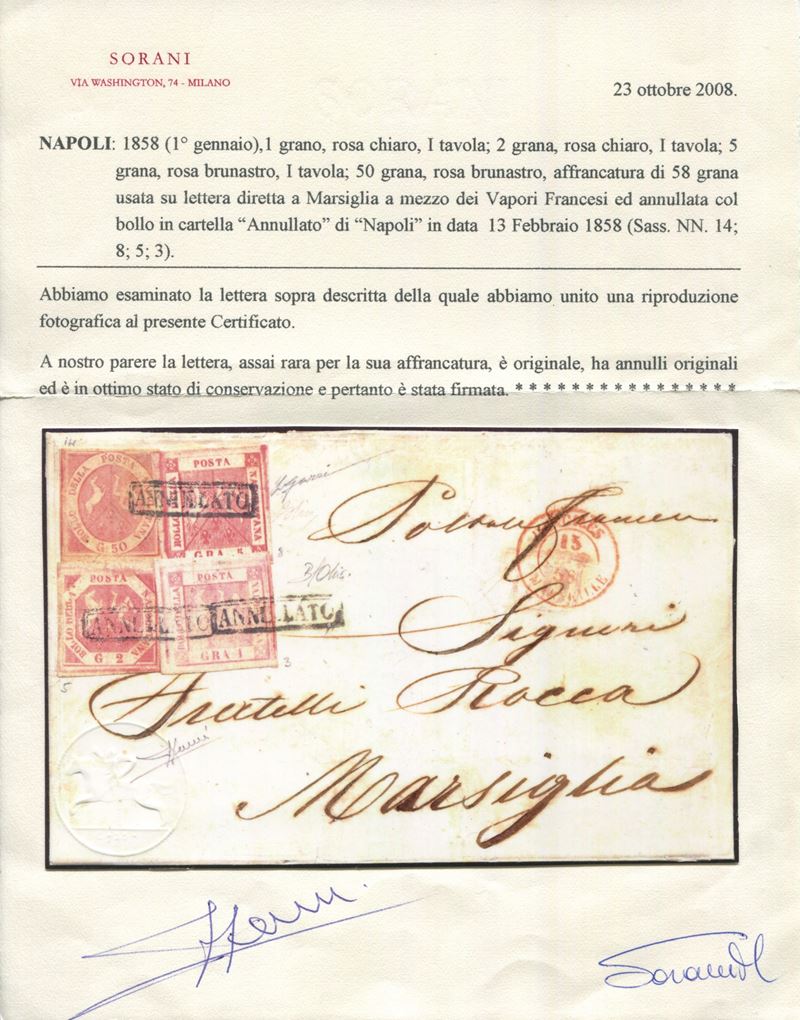 SORANI
VIA WASHINGTON, 74 - MILANO
23 ottobre 2008.
NAPOLI: 1858 (1° gennaio),1 grano, rosa chiaro, I tavola; 2 grana, rosa chiaro, I tavola; 5
grana, rosa brunastro, I tavola; 50 grana, rosa brunastro, affrancatura di 58 grana
usata su lettera diretta a Marsiglia a mezzo dei Vapori Francesi ed annullata col
bollo in cartella “Annullato” di “Napoli” in data 13 Febbraio 1858 (Sass. NN. 14;
8; 5; 3).
Abbiamo esaminato la lettera sopra descritta della quale abbiamo unito una riproduzione
fotografica al presente Certificato.
A nostro parere la lettera, assai rara per la sua affrancatura, è originale, ha annulli originali
ed è in ottimo stato di conservazione e pertanto è stata firmata. * * * * * * * * * * * * * * * *
14
BOLLO DELLA POSTA
G. 50
POSTA
BOLLO
GRA 5
ANNULLATO
8
15
MARSEILLE
POSTA
BOLLO DELLA
G 2
POSTA
GRA 1
ANNULLATO
ANNULLATO
5
3
Signori
Fratelli Rocca
Marsiglia